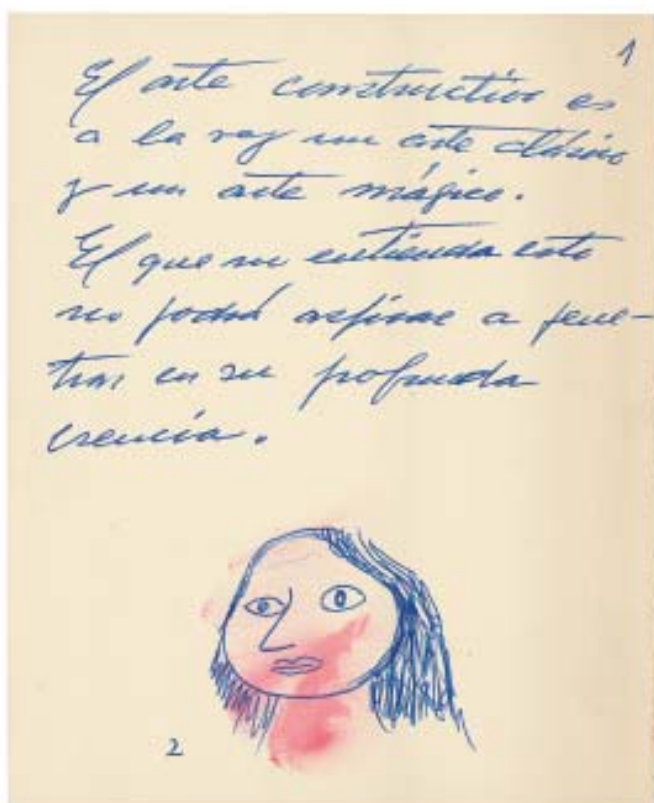 1
El arte constructivo es
a la vez un arte clásico
y un arte mágico.
El que no entienda esto
no podrá aspirar a pene-
trar en su profunda
esencia.
2